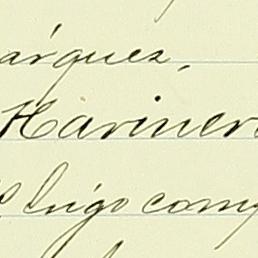 árquez,
Hariner
l trigo com